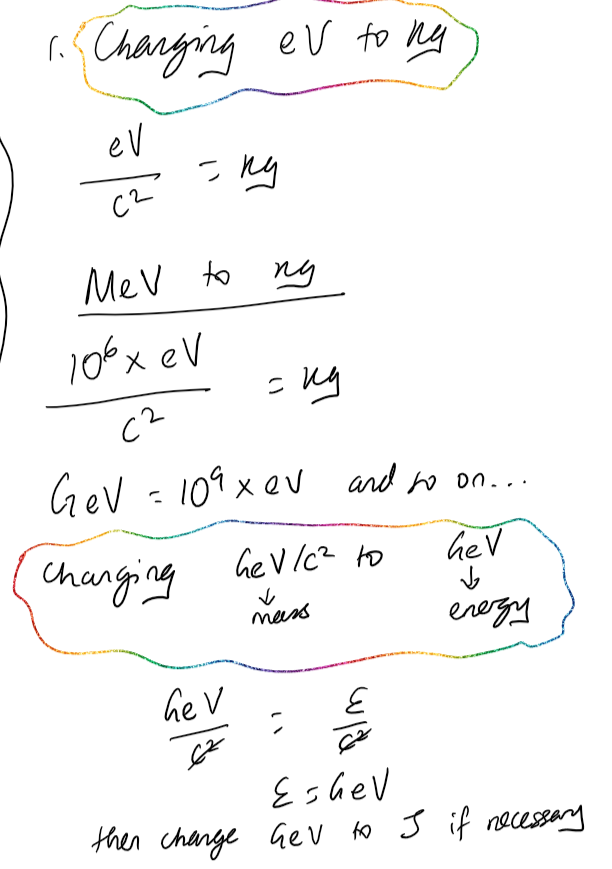 1. Changing eV to kg
eV/c² = kg
MeV to kg
10⁶ × eV/c² = kg
GeV = 10⁹ × eV and so on...
Changing GeV/c² to GeV
↓ mass ↓ energy
GeV/c² = E/c²
E = GeV
then change GeV to J if necessary